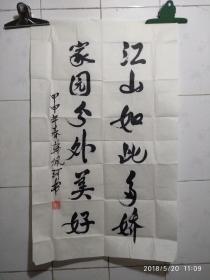 江山如此多娇
家园分外美好
甲申年春
2018/5/20 11:09